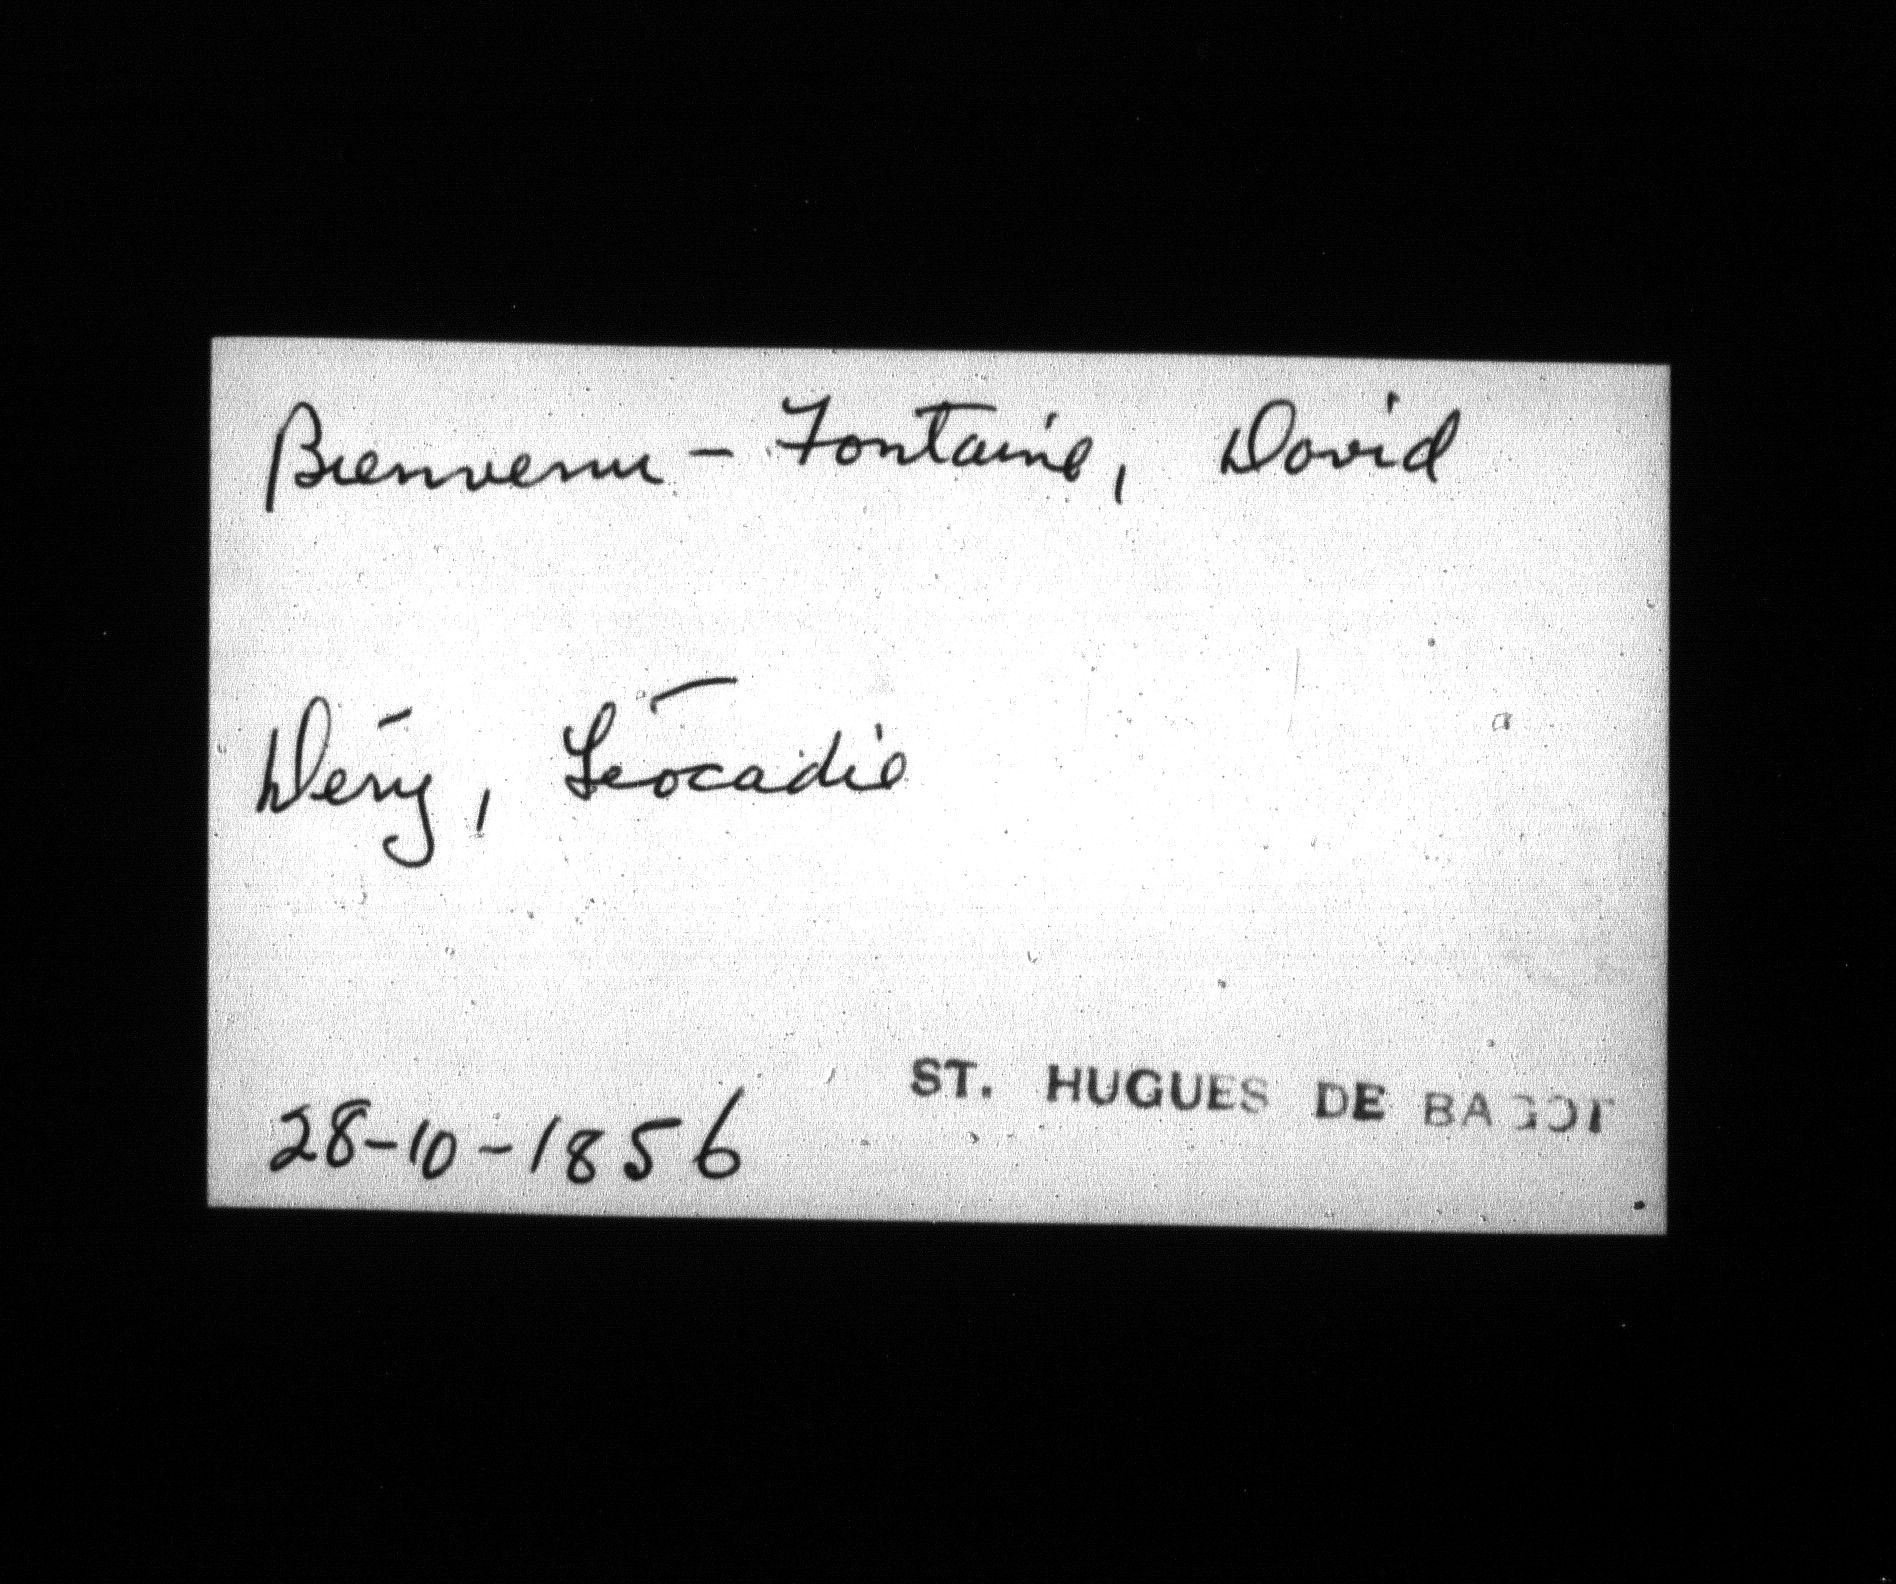 Bienvenu - Fontaine, David
Déry, Léocadie
ST. HUGUES DE BAGOT
28-10-1856